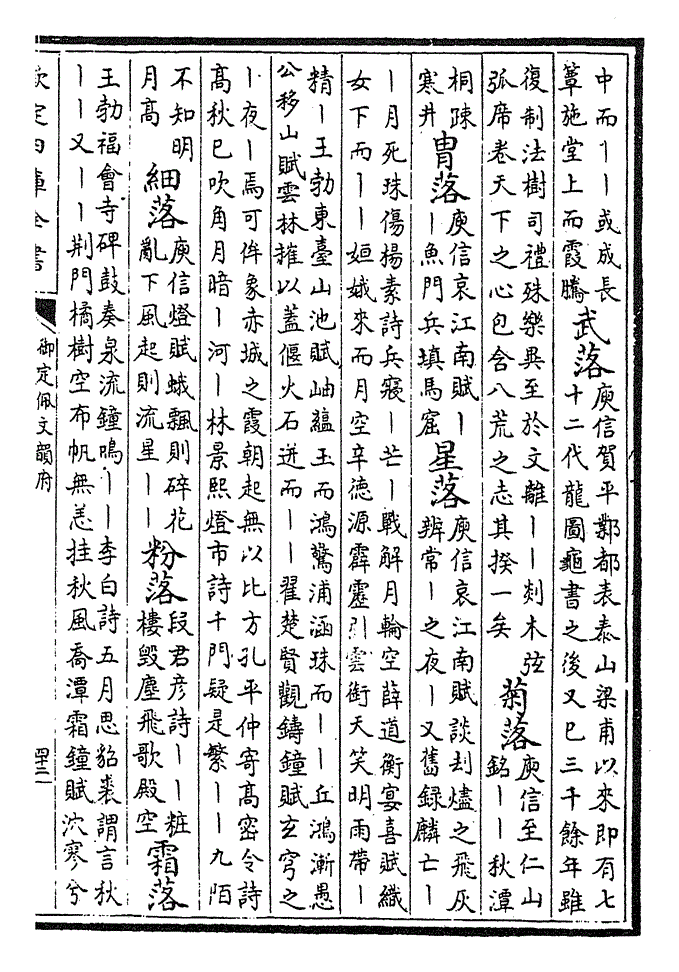 中而丨丨或成長
簟施堂上而霞騰
武落
庾信賀平鄴都表泰山梁甫以來即有七
十二代龍圖龜書之後又已三千餘年雖
復制法樹司禮殊樂異至於文離丨丨刻木弦
弧席卷天下之心包含八荒之志其揆一矣
菊落
庾信至仁山
銘丨丨秋潭
桐疎
寒井
胄落
庾信哀江南賦丨
丨魚門兵填馬窟
星落
庾信哀江南賦談刦燼之飛灰
辨常丨之夜丨又舊録麟亡丨
丨月死珠傷楊素詩兵寢丨芒丨戰解月輪空薛道衡宴喜賦織
女下而丨丨姮娥來而月空辛德源霹靂引雲銜天笑明雨帶丨
精丨王勃東臺山池賦岫藴玉而鴻驚浦涵珠而丨丨丘鴻漸愚
公移山賦雲林摧以蓋偃火石迸而丨丨翟楚賢觀鑄鐘賦玄穹之
丨夜丨焉可侔象赤城之霞朝起無以比方孔平仲寄高密令詩
高秋已吹角月暗丨河丨林景熙燈市詩千門疑是繁丨丨九陌
不知明
月高
細落
庾信燈賦蛾飄則碎花
亂下風起則流星丨丨
粉落
段君彦詩丨丨粧
樓毁塵飛歌殿空
霜落
王勃福會寺碑鼓奏泉流鐘鳴丨丨李白詩五月思貂裘謂言秋
丨丨又丨丨荆門橘樹空布帆無恙挂秋風喬潭霜鐘賦泬寥兮
欽定四庫全書
御定佩文韻府